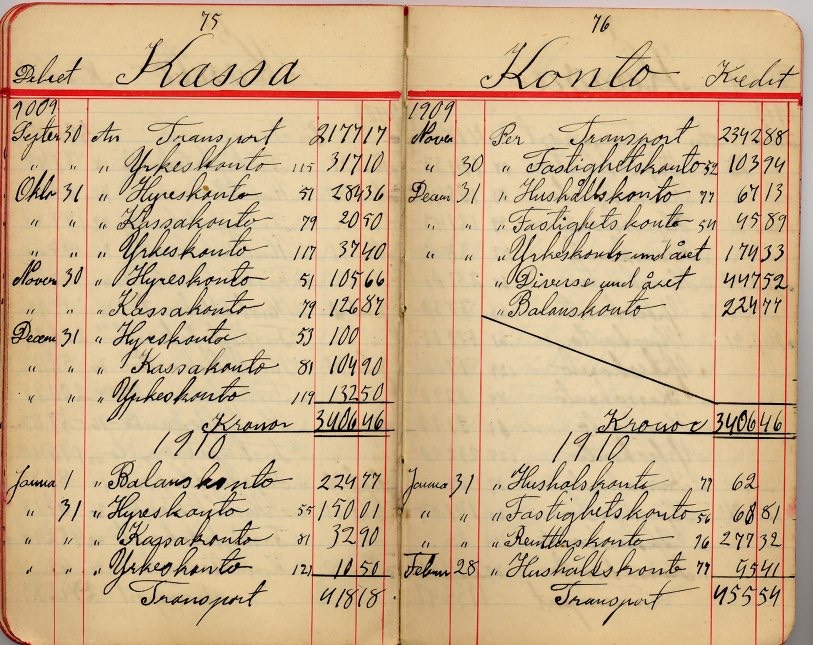 75
Debet Kassa
1909
Septer 30 An Transport 2177 17
" " " Yrkeskonto 115 317 10
Oktbr 31 " Hyreskonto 51 284 36
" " " Kassakonto 79 20 50
" " " Yrkeskonto 117 37 40
Novem 30 " Hyreskonto 51 105 66
" " " Kassakonto 79 126 87
Decem 31 " Hyreskonto 53 100
" " " Kassakonto 81 104 90
" " " Yrkeskonto 119 132 50
Kronor 3406 46
1910
Janua 1 " Balanskonto 224 77
" 31 " Hyreskonto 55 150 01
" " " Kassakonto 81 32 90
" " " Yrkeskonto 121 10 50
Transport 418 18
76
Konto Kredit
1909
Novem Per Transport 2342 88
" 30 " Fastighetskonto 52 103 94
Decem 31 " Hushållskonto 77 67 13
" " " Fastighetskonto 54 45 89
" " " Yrkeskonto und året 174 33
" Diverse und året 447 52
" Balanskonto 224 77
Kronor 3406 46
1910
Janua 31 " Husholskonto 77 62
" " " Fastighetskonto 56 60 81
" " " Rentterskonto 76 237 32
Febru 28 " Hushållskonto 77 95 41
Transport 455 54